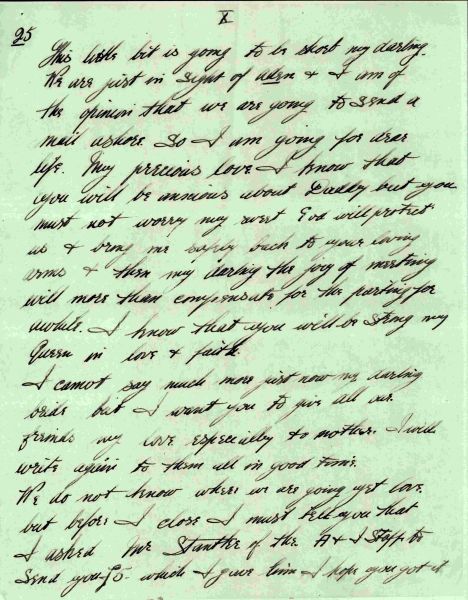 X
25
This little bit is going to be short my darling.
We are just in sight of Aden & I am of
the opinion that we are going to send a
mail ashore so I am going for dear
life. My precious love I know that
you will be anxious about Daddy but you
must not worry my sweet God will protect
us & bring me safely back to your loving
arms & then my darling the joy of meeting
will more than compensate for the parting for
awhile. I know that you will be strong my
Queen in love & faith.
I cannot say much more just now my darling
bride but I want you to give all our
friends my love especially to mother. I will
write again to them all in good time.
We do not know where we are going yet love
but before I close I must tell you that
I asked Mr of the A & I Staff to
send you £5- which I gave him I hope you got it